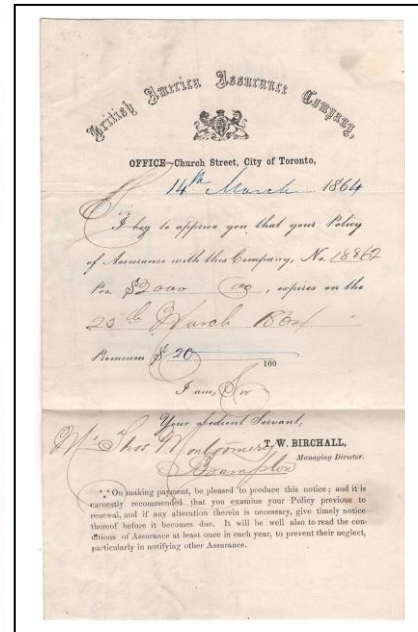 British America Assurance Company,
OFFICE—Church Street, City of Toronto,
14th March 1864
I beg to apprise you, that your Policy
of Assurance with this Company, No. 18862
For $2000, expires on the
25th March 1864
Premium $ 20 100
I am, Sir
Your obedient Servant,
T. W. BIRCHALL,
Managing Director.
Mr Thos Montgomery
Brampton
*** On making payment, be pleased to produce this notice; and it is
earnestly recommended that you examine your Policy previous to
renewal, and if any alteration therein is necessary, give timely notice
thereof before it becomes due. It will be well also to read the con-
ditions of Assurance at least once in each year, to prevent their neglect,
particularly in notifying other Assurance.